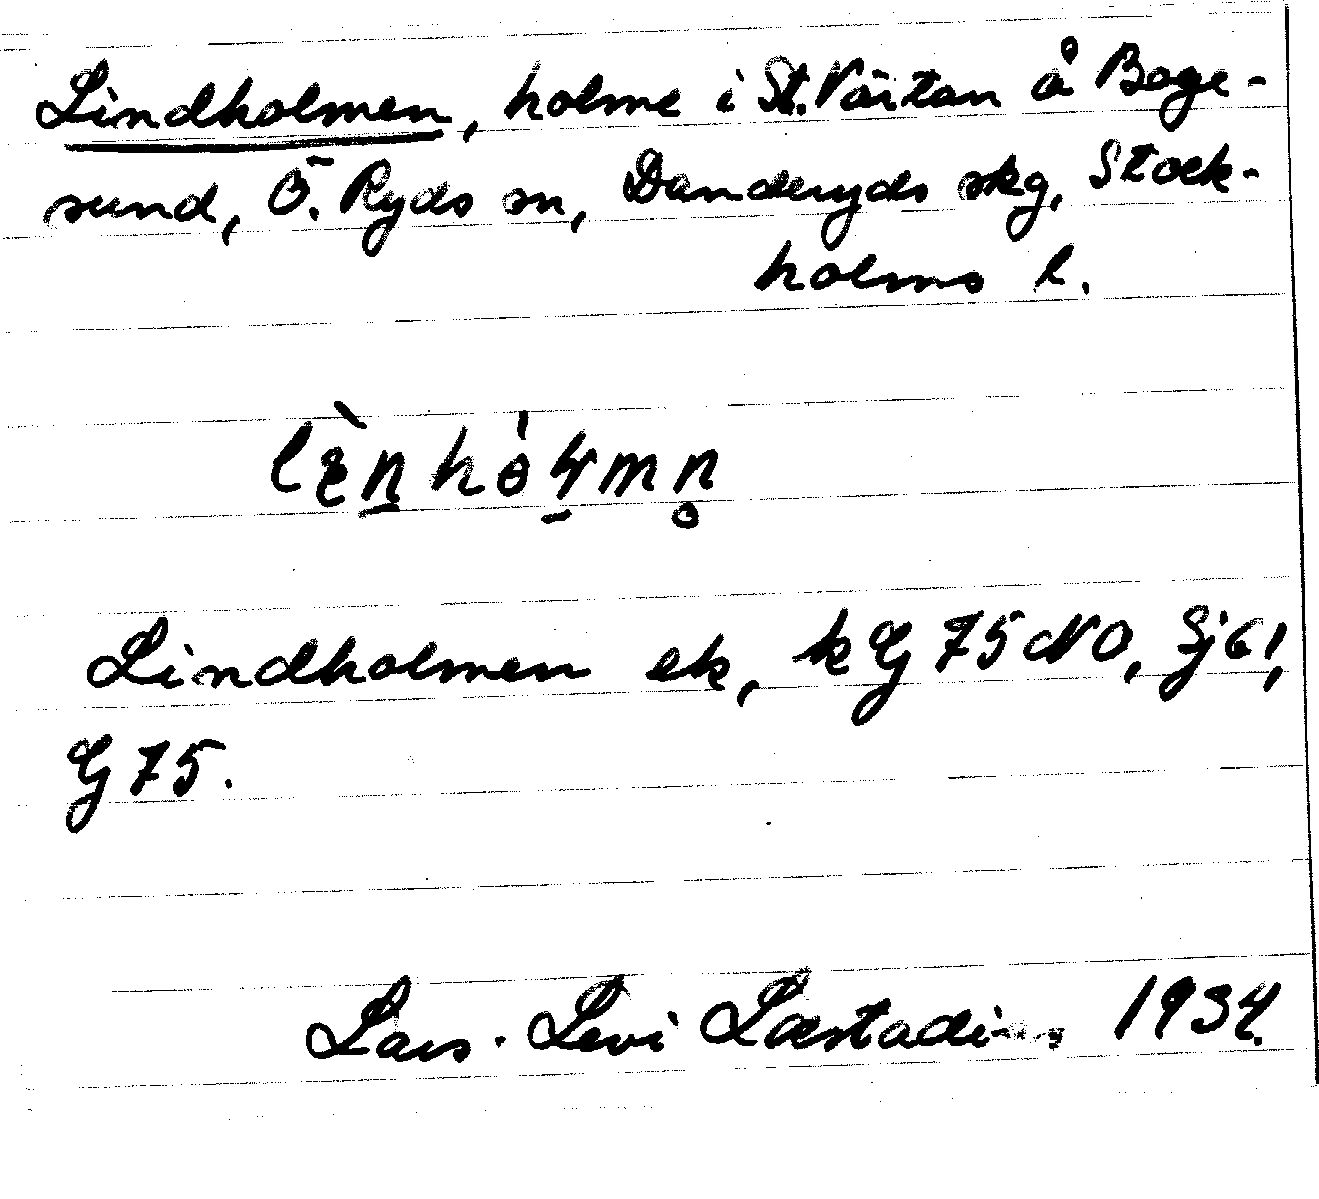 Lindholmen, holme i St. Värtan å Boge-
sund, Ö. Ryds sn, Danderyds skg, Stock-
holms l.
Lindholmen ek, k G 75 NO, Sj 61,
G 75.
Lars-Levi Læstadius 1934.